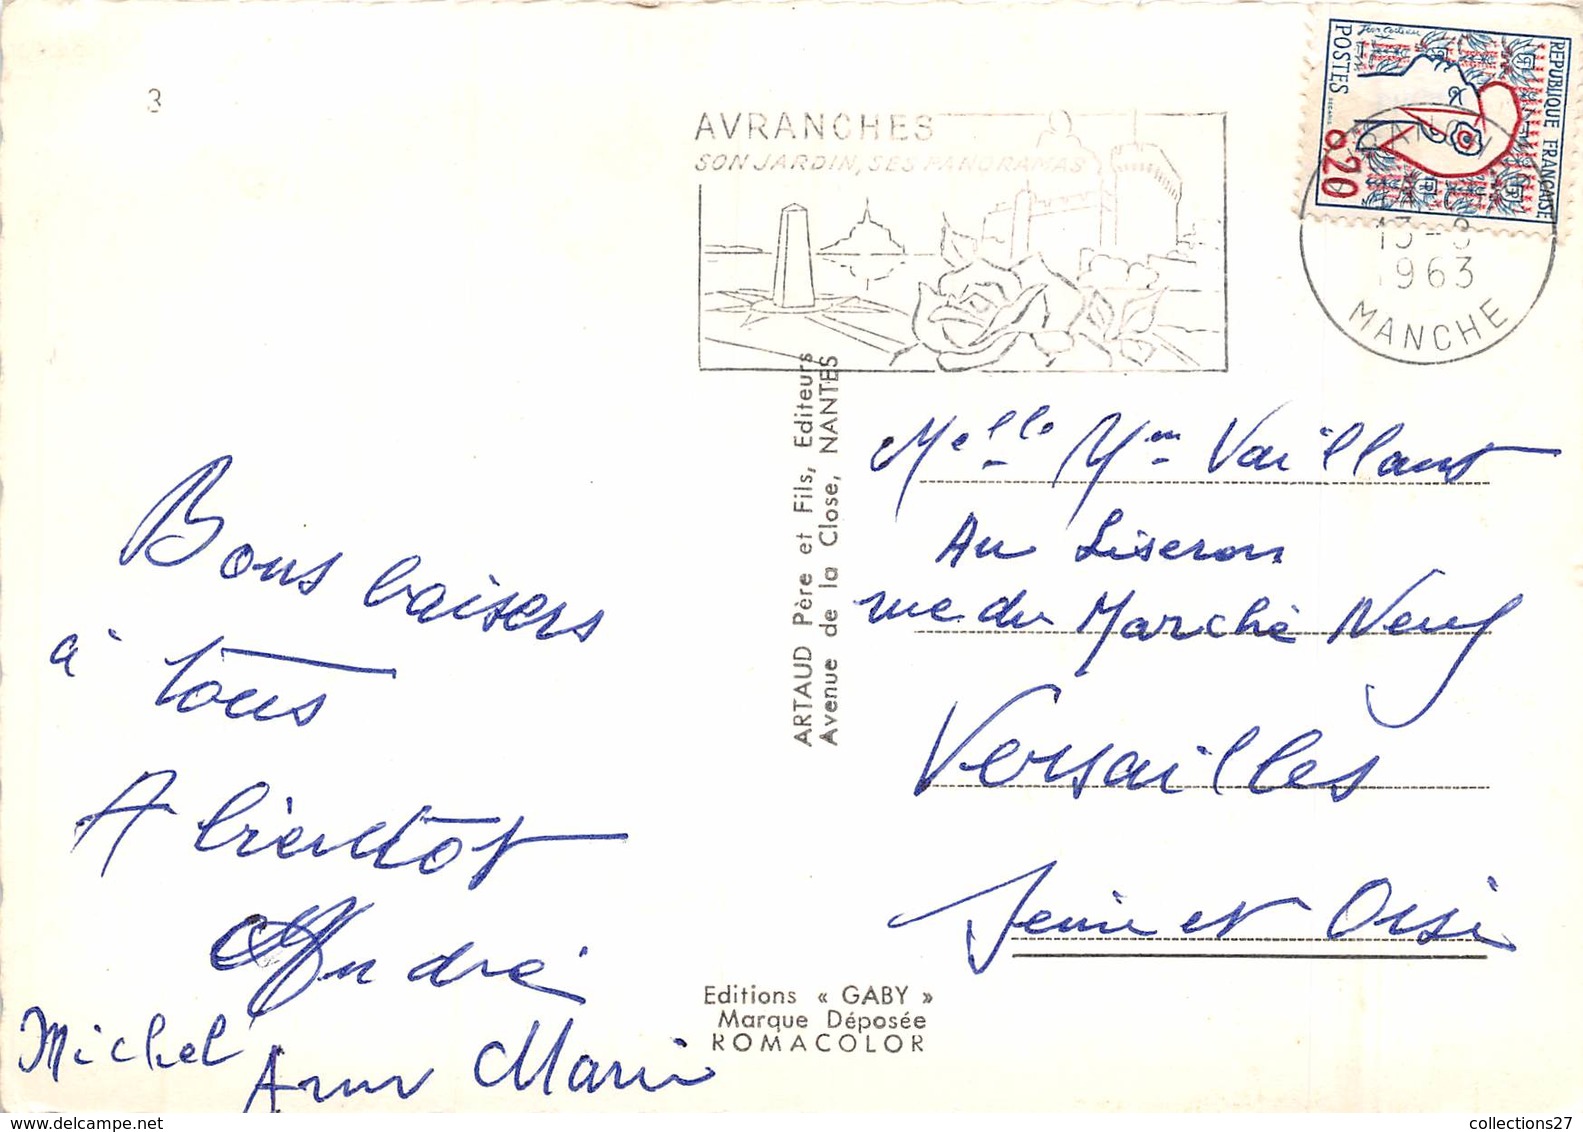 3
AVRANCHES
SON JARDIN, SES PANORAMAS
REPUBLIQUE FRANÇAISE
POSTES
Jean Cocteau
0,20
1963
MANCHE
Bons baisers
à tous
A bientôt
André
Michel
Anne Marie
ARTAUD Père et Fils, Editeurs
Avenue de la Close, NANTES
Melle Vaillant
Au Liseron
rue du Marché Neuf
Versailles
Seine et Oise
Editions « GABY »
Marque Déposée
ROMACOLOR
delcampe.net
collections27